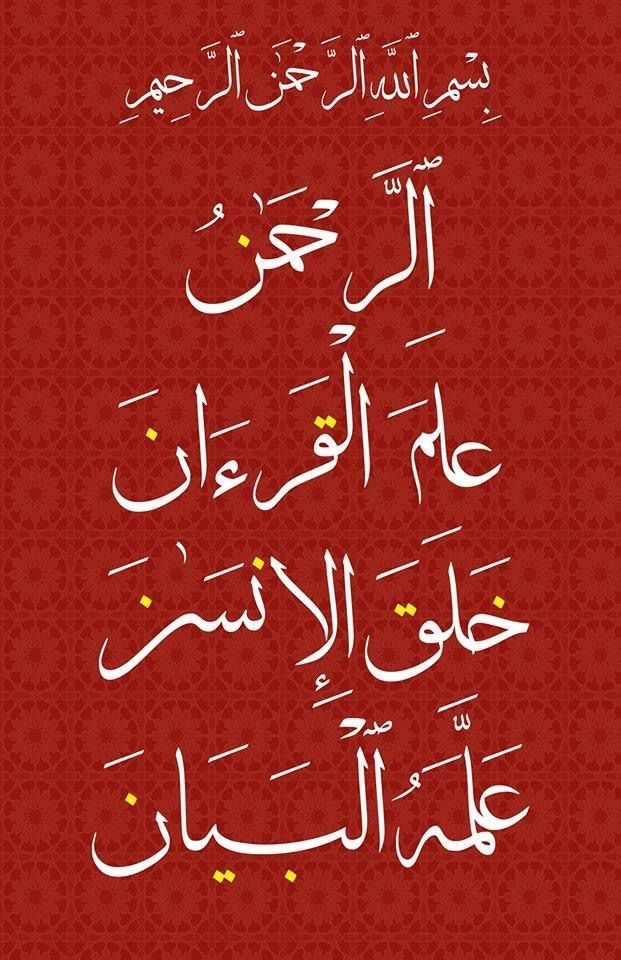 بِسْمِ ٱللَّهِ ٱلرَّحْمَٰنِ ٱلرَّحِيمِ
ٱلرَّحْمَٰنُ
علَمَ الْقَرَءَانَ
خَلَقَ الإِنسَٰنَ
عَلَّمَهُ ٱلْبَيَانَ